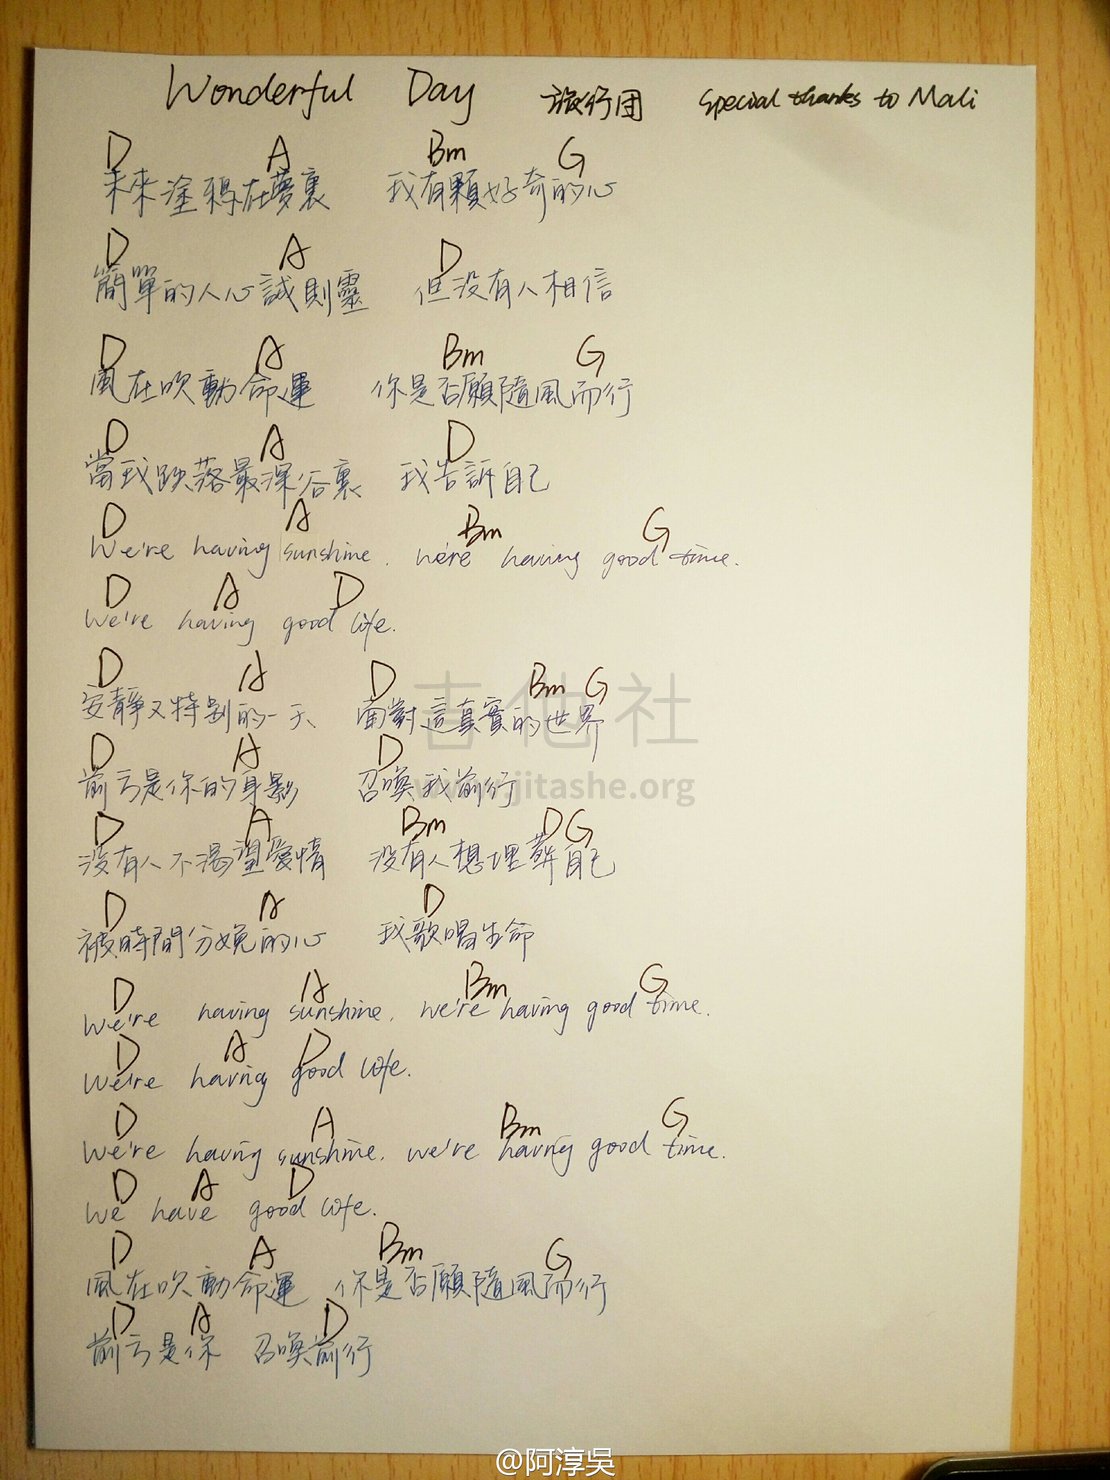 Wonderful Day 旅行团 Special thanks to Mali
D A Bm G
未來塗鴉在夢裏 我有顆好奇的心
D A D
簡單的人心誠則靈 但没有人相信
D A Bm G
風在吹動命運 你是否願隨風而行
D A D
當我跌落最深谷裏 我告訴自己
D A Bm G
We're having sunshine. we're having good time.
D A D
We're having good life.
D A D Bm G
安靜又特别的一天 面對這真實的世界
吉他社
D A D
前方是你的身影 召喚我前行
www.jitashe.org
D A Bm D G
没有人不渴望愛情 没有人想埋葬自己
D A D
被時間分娩的心 我歌唱生命
D A Bm G
We're having sunshine. we're having good time.
D A D
We're having good life.
D A Bm G
We're having sunshine. we're having good time.
D A D
We have good life.
D A Bm G
風在吹動命運 你是否願隨風而行
D A D
前方是你 召喚前行
@阿淳吳